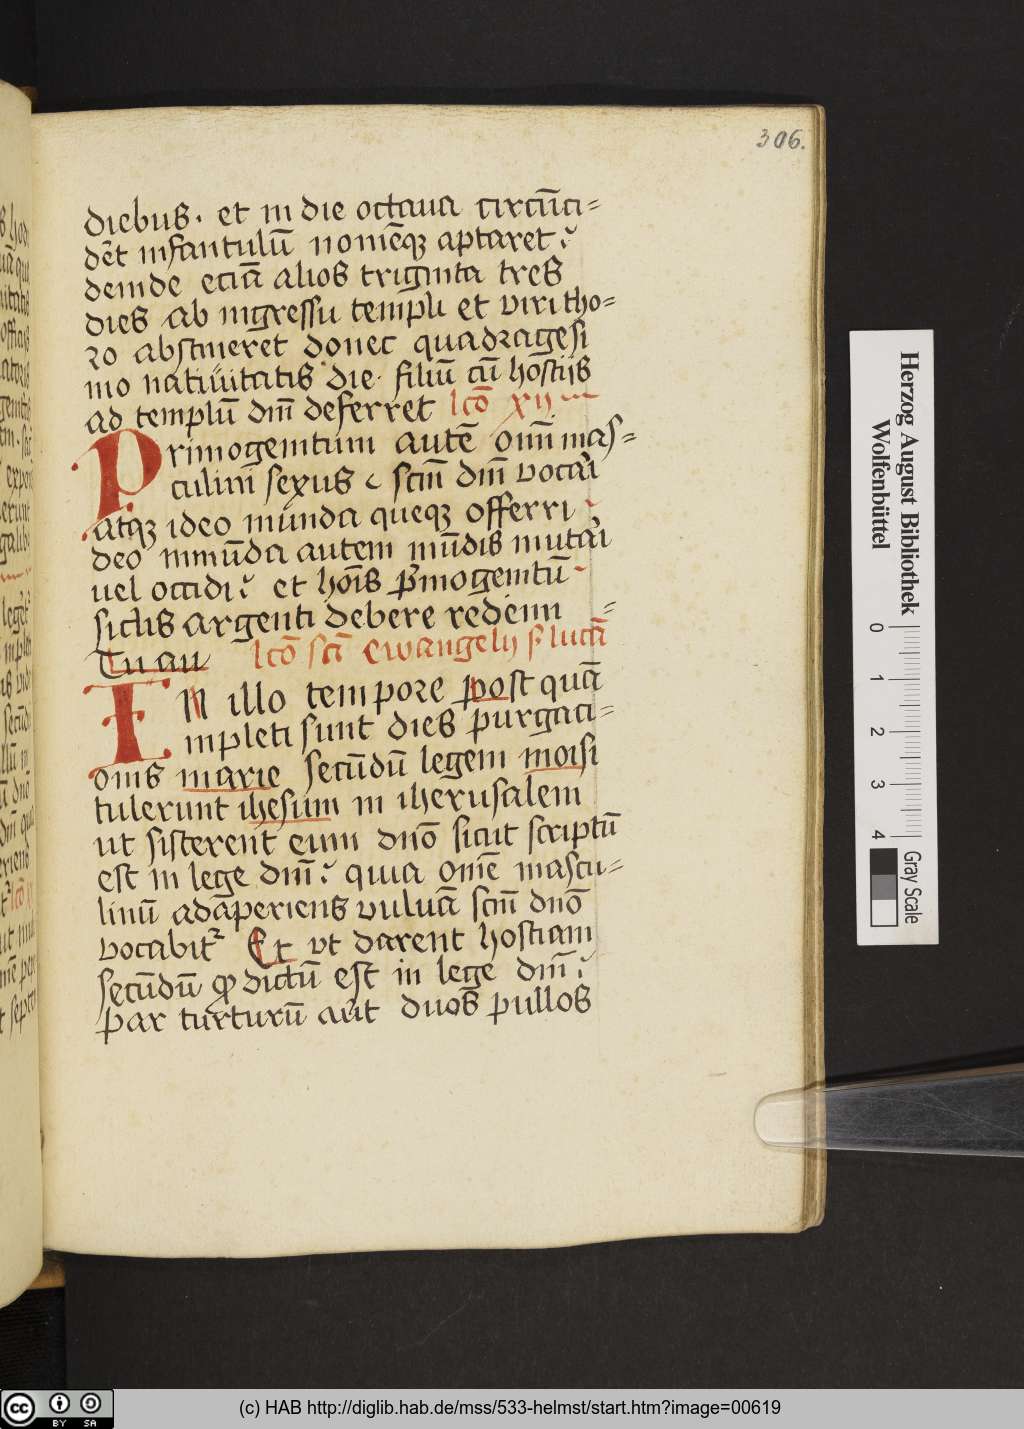 306.
diebus. et in die octaua circūci=
dēt infantulū nomēqꝫ aptaret
deinde eciā alios triginta tres
dies ab ingressu templi et viri tho=
ro abstineret donec quadragesi
mo natiuitatis die. filiū cū hostijs
ad templū dn̄i deferret lc̄o xij
Primogenitum autē om̄i mas=
culini sexus scīm dn̄i vocari
atqꝫ ideo munda queqꝫ offerri
deo inmūda autem mūdis mutari
uel occidi et hōīs p̄mogenitū
siclis argenti debere redimi =
Tu au lc̄o sc̄i ewangelij s luctā
IN illo tempore post quā
inpleti sunt dies purgaci=
onis marie secūdū legem moisi
tulerunt ihesum in iherusalem
ut sisterent eum dn̄o sicut scriptū
est in lege dn̄i quia om̄e mascu=
linū adāperiens vuluā scīm dn̄o
vocabit᷑ Et vt darent hostiam
secūdū ꝙ dictū est in lege dn̄i
par turturū aut duos pullos
Herzog August Bibliothek
Wolfenbüttel
0 1 2 3 4
Gray Scale
cc BY SA
(c) HAB http://diglib.hab.de/mss/533-helmst/start.htm?image=00619